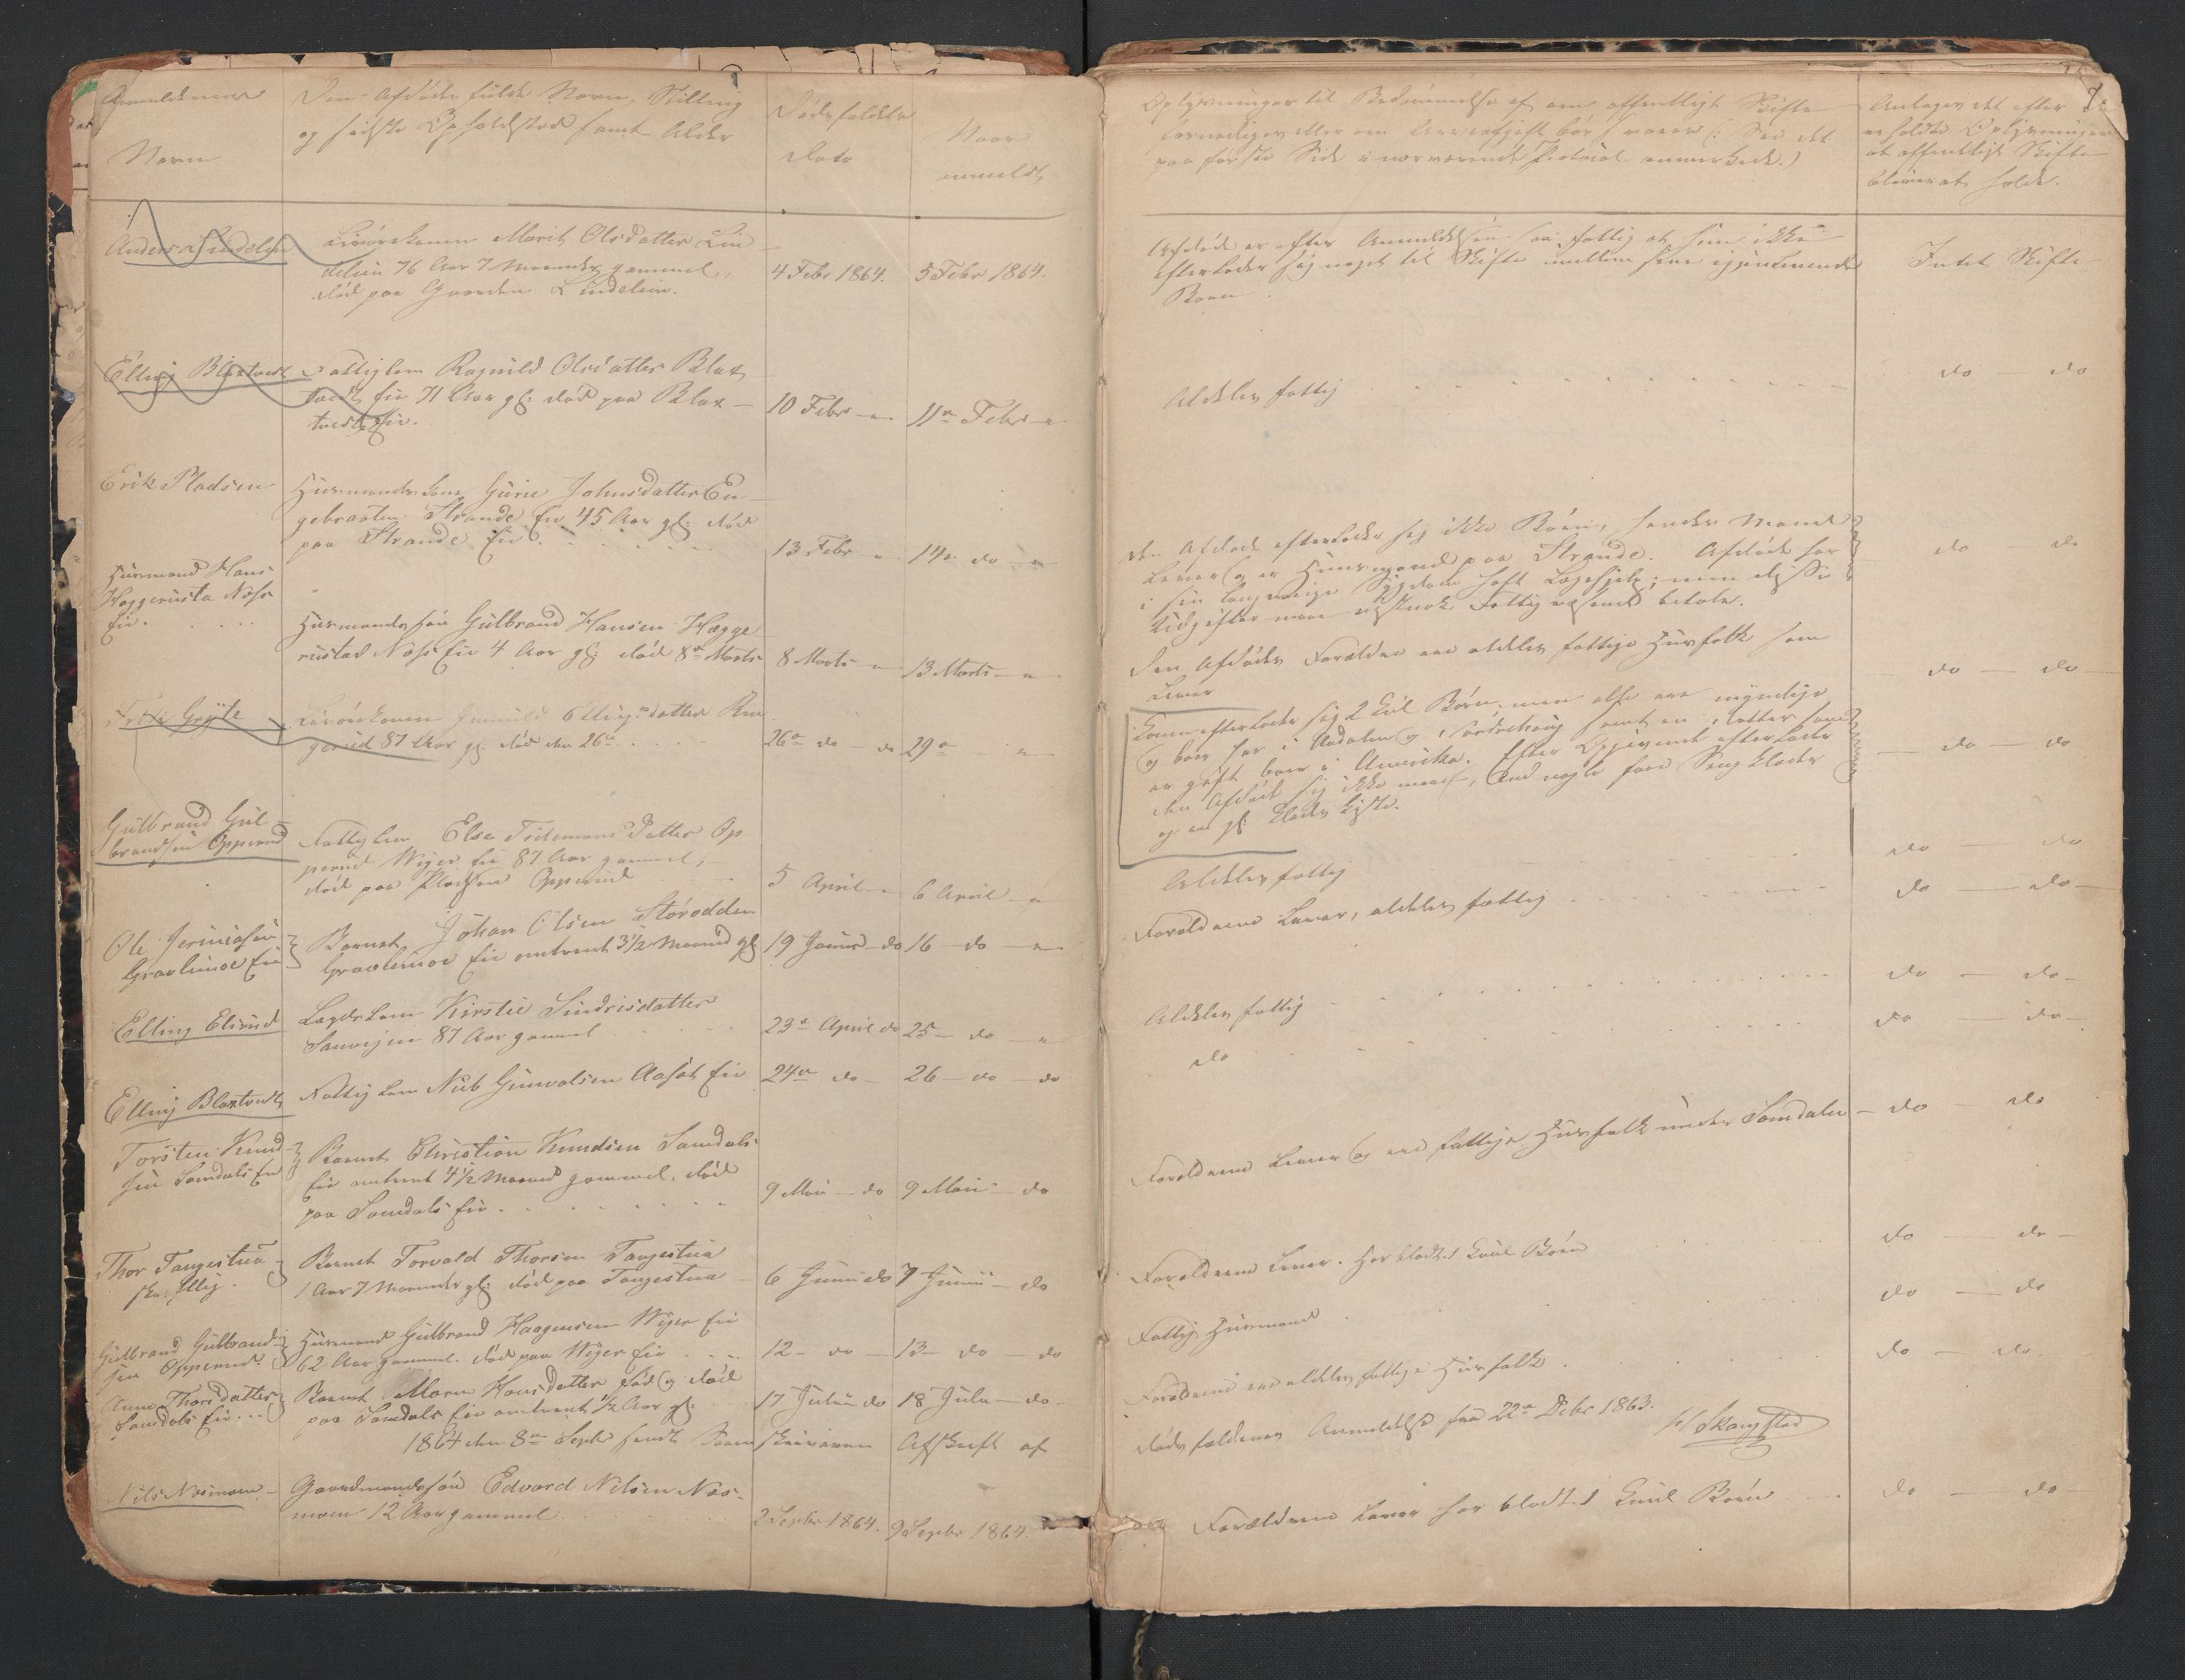 Anmelderens
Navn
Den Afdødes fulde Navn, Stilling
og sidste Opholdsted samt Alder
Dødsfaldets
Dato
Naar
anmeldt
Oplysninger til Bedømmelse af om offentligt Skifte
fornødiges eller om Arveafgift bør svares (: See det
paa første Side i nærværende Protocol anmærkede.)
Antages det efter de
erholdte Oplysninger
at offentligt Skifte
bliver at holde.
Anders Lindelien
Livørekonen Marit Olsdatter Lin
delien 76 Aar 7 Maaneder gammel,
død paa Gaarden Lindelien.
4 Febr 1864.
5 Febr 1864.
Afdøde er efter Anmeldelsen saa fattig at hun ikke
efterlader sig noget til Skifte mellem sine igjenlevende
Børn
Intet Skifte
Elling Blaxtvedt
Fattiglem Ragnild Olsdatter Blax
tvedt Eie 71 Aar gl: død paa Blax-
tvedt Eie.
10 Febr - "
11te Febr - "
Aldeles fattig
do - do
Erik Pladsen
Husmandskone Gurie Johnsdatter En
gebraaten Strande Eie 45 Aar gl: død
paa Strande Eie
13 Febr "
14de do "
den Afdøde efterlader sig ikke Børn, hendes Mand
Lever og er Huusmand paa Strande. Afdøde har
i sin langvarige Sygdom haft Lægehjelp; men disse
Udgifter maa vistnok Fattigvæsenet betale.
do - do
Husmand Hans
Haggerusta Næss
Eie.
Husmandssøn Gulbrand Hansen Hægge
rustad Næss Eie 4 Aar gl: død 8de Marts
8 Marts "
13 Marts "
Den Afdødes Forældre ere aldeles fattige Husfolk som
Lever
do - do
Gryte
Livørekonen Gunnild Ellingsdatter Rin
gerud 87 Aar gl: død den 26de
26de do - do
29de "
Konen efterlader sig 2 Kul Børn, men alle ere myndige
og boer her i Aadalen og Nordrehoug samt en Datter som
er gift boer i Amerika. Efter Opgivende efterlader
den Afdøde sig ikke mere, end nogle faae Sengklæder
og en gl: Klædes Kiste.
do - do
Gulbrand Gul-
brandsen Opperud
Fattiglem Else Tidemansdatter Op
perud Wiger Eie 87 Aar gammel,
død paa Pladsen Opperud
5 April "
6 April "
Aldeles fattig
do - do
Ole Jeremiasen
Gravlimoe Eie
Barnet Johan Olsen Storodden
Gravlimoe Eie omtrent 3 1/2 Maaned gl
19 Januar do
16 do "
Forældrene Lever, aldeles fattig
do - do
Elling Elsrud
Lægdslem Kirstie Sindrisdatter
Sauvigen 87 Aar gammel
23de April do
25 - do "
Aldeles fattig
do - do
Elling Blaxtvedt
Fattiglem Nub Gunvalsen Aasæt Eie
24de do
26 - do - do
do
do - do
Torsten Knud-
sen Somdals Eie
Barnet Christian Knudsen Somdals
Eie omtrent 4 1/2 Maaned gammel, død
paa Somdals Eie.
9 Mai - do
9 Mai - do
Forældrene Lever og ere fattige Husfolk under Somdalen
do - do
Thor Tangestua
Barnet Torvald Thorsen Tangestua
1 Aar 7 Maaneder gl: død paa Tangestua
6 Juni do
7 Juni - do
Forældrene Lever. Har blodt 1 Kuul Børn
do - do
Gulbrand Gulbrand-
sen Opperud
Husmand Gulbrand Haagensen Wiger Eie
62 Aar gammel. død paa Wiger Eie
12 - do
13 - do - do
Fattig Husmand
do - do
Anne Thorsdatter
Somdals Eie
Barnet Maren Hansdatter Født og død
paa Somdals Eie omtrent 1/2 Aar gl:
17 Juli do
18 Juli - do
Forældrene ere aldeles fattige Husfolk
do - do
1864 den 8de Septr sendt Sorenskriveren Afskrift af
dødsfaldenes Anmeldelse fra 22de Debr 1863.
Skangstad
Nils Næsmoen
Gaardmandssøn Edvard Nilsen Næs-
moen 12 Aar gammel
2 Septbr 1864.
9 Septbr 1864.
Forældrene Lever har blodt 1 Kuul Børn
do - do